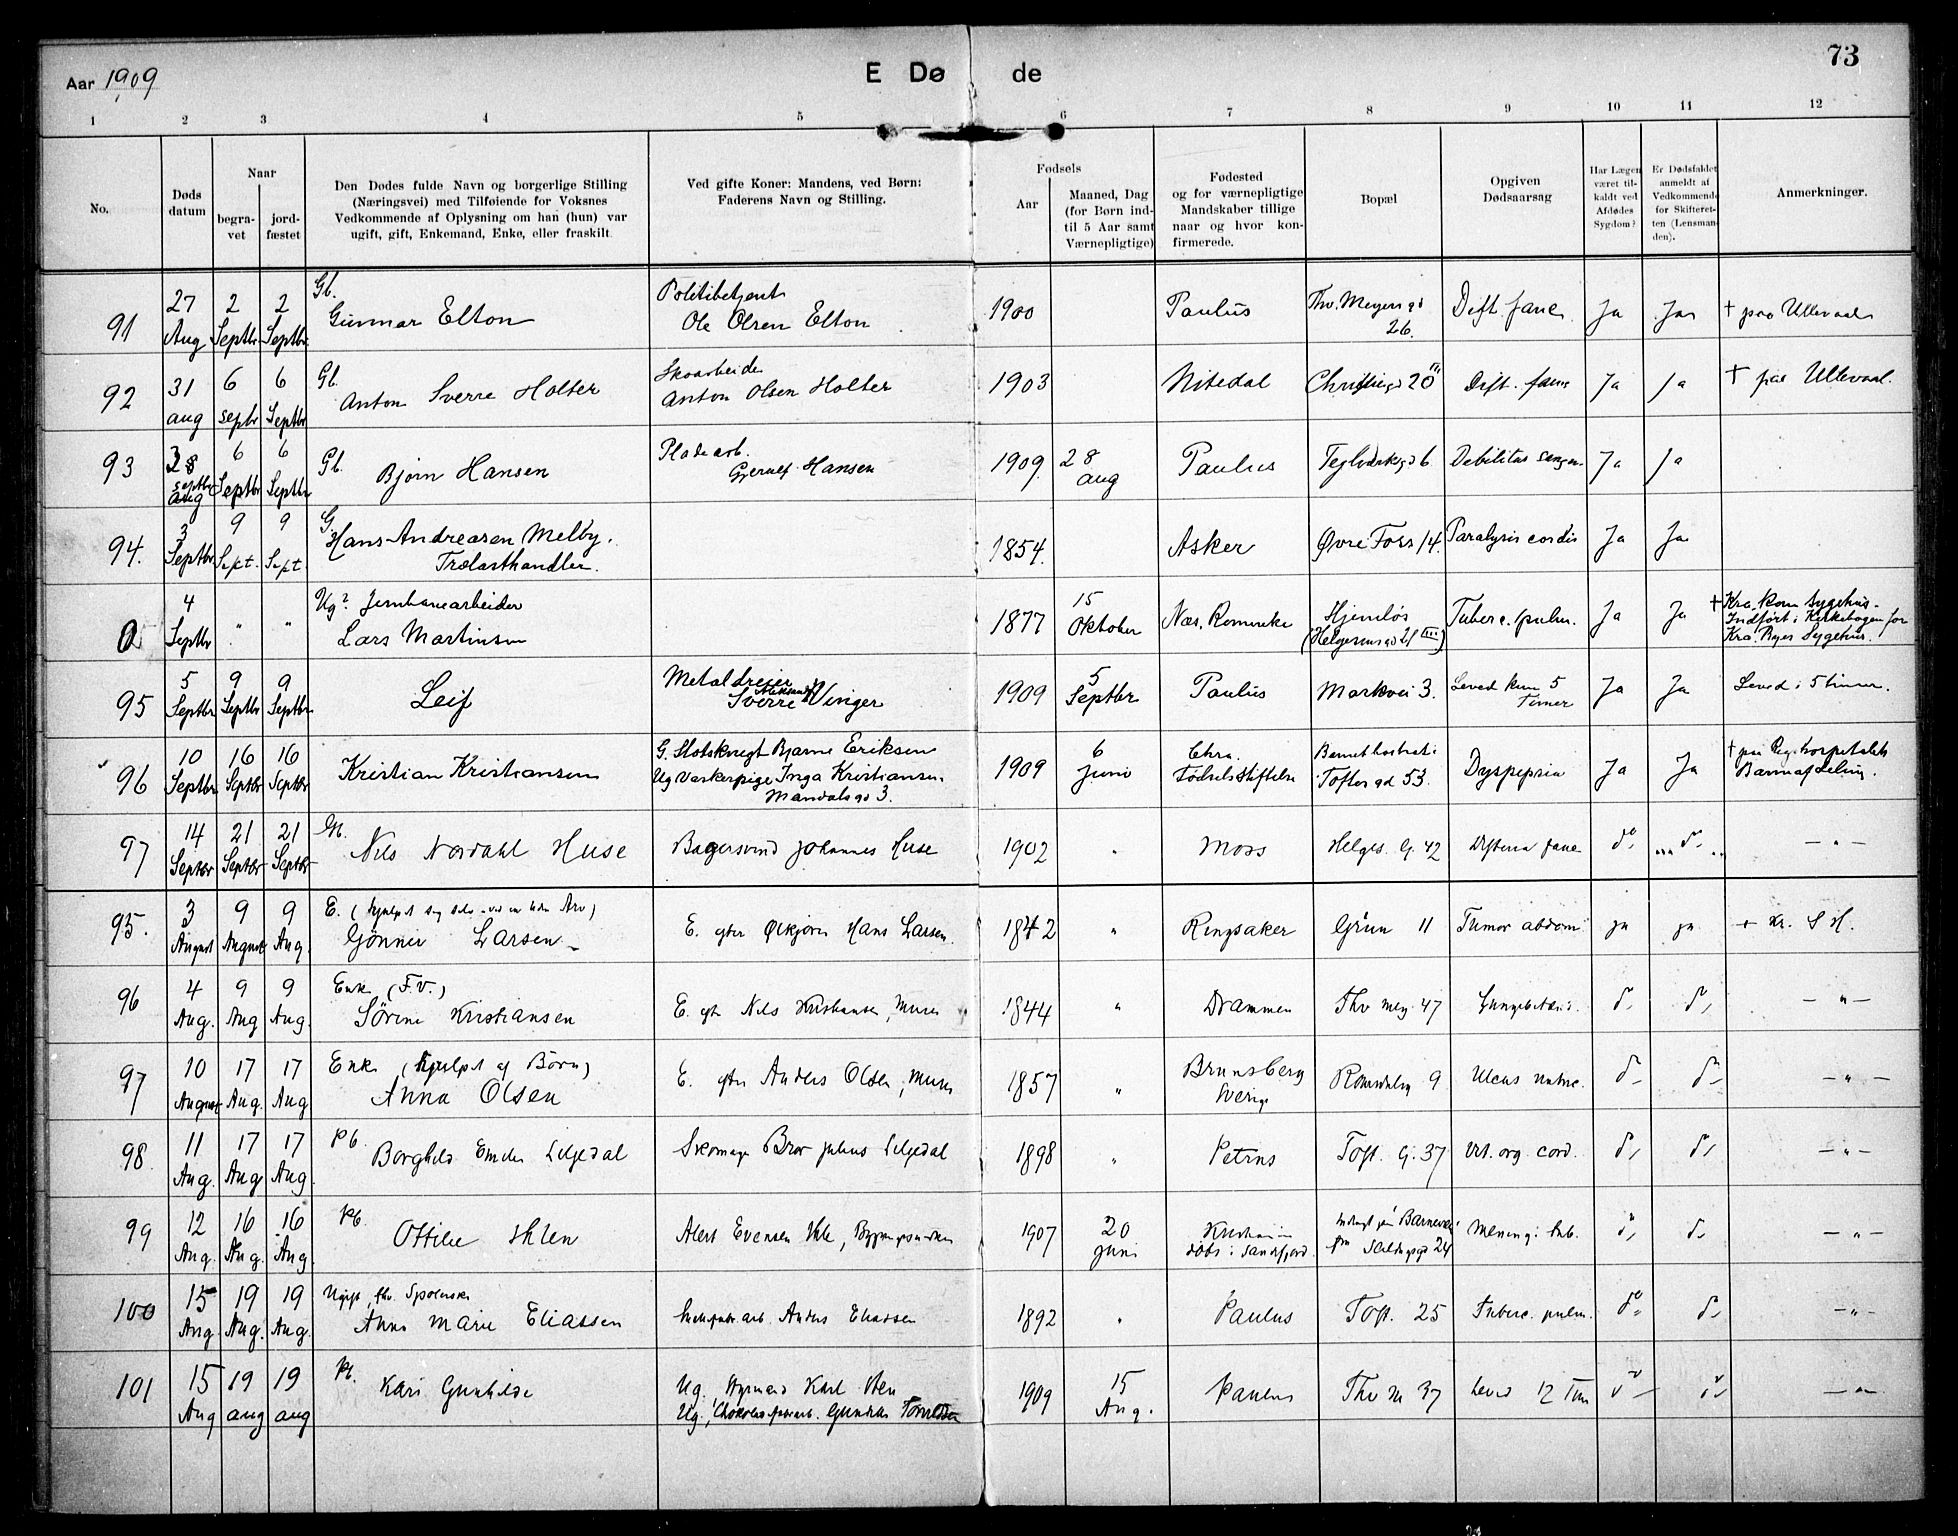 73
Aar 1909
E Dø de
1 2 3 4 5 6 7 8 9 10 11 12
No.
Døds datum
Naar
begravet
jordfæstet
Den Dødes fulde Navn og borgerlige Stilling
(Næringsvei) med Tilføiende for Voksnes
Vedkommende af Oplysning om han (hun) var
ugift, gift, Enkemand, Enke, eller fraskilt.
Ved gifte Koner: Mandens, ved Børn:
Faderens Navn og Stilling.
Fødsels
Aar
Maaned, Dag
(for Børn ind-
til 5 Aar samt
Værnepligtige)
Fødested
og for værnepligtige
Mandskaber tillige
naar og hvor kon-
firmerede.
Bopæl
Opgiven
Dødsaarsag
Har Lægen
været til-
kaldt ved
Afdødes
Sygdom?
Er Dødsfaldet
anmeldt af
Vedkommende
for Skifteret-
ten (Lensman-
den).
Anmerkninger.
91 27 Aug 2 Septbr 2 Septbr Gb. Gunnar Elton Politibetjent Ole Olsen Elton 1900 Paulus Thv. Meyers gd 26. Ja Ja † paa Ullevaal
92 31 aug 6 septbr 6 Septbr Gb. Anton Sverre Holter Skoarbeider Anton Olsen Holter 1903 Nitedal 20 Ja Ja † paa Ullevaal.
93 3 28 septbr Aug 6 Septbr 6 Septbr Gb. Bjørn Hansen Pladearb. Hansen 1909. 28 aug Paulus Teglverksgd 6 Debilitas Ja Ja
94. 3 Septbr 9 Sept. 9 Sept. G. Hans Andreasen Melby. Trælasthandler. 1854. Asker Øvre Foss 14. Paralysis cordis Ja Ja
0 4 Septbr " " Ug? Jernbanearbeider Lars Martinsen 1877 15 Oktober Næs, Romerike Hjemløs (Helgesens gd 21 III) Tuberc. pulm. Ja Ja † Kra. kom sygehus. Indført i Kirkebogen for Kra. Byes Sygehus.
95 5 Septbr 9 Septbr 9 Septbr Leif Metaldreier Sverre Winger 1909 5 Septbr Paulus Markvei 3. Leved kun 5 Timer Ja Ja Leved i 5 timer.
96 10 Septbr 16 Septbr 16 Septbr Kristian Kristiansen G. Slotsknegt Bjarne Eriksen Ug Vaskerpige Inga Kristiansen. Mandals gd 3. 1909 6 Juni Chra. Fødselsstiftelse Toftes gd 53. Dyspepsia Ja Ja † paa Rigshospitalets Barneafdeling.
97 14 Septbr 21 Septbr 21 Septbr Nils Nordahl Huse Bagersvend Johannes Huse 1902 " Moss Helges. G. 42 do do — " —
95. 3 August 9 August 9 Aug. E. Gønner Larsen E. efter Hans Larsen. 1842 " Ringsaker Grün 11 Tumor abdom. ja ja
96 4 Aug. 9 Aug 9 Aug. Enke (F.V.) Sørine Kristiansen E. eft. Nils Kristiansen, Murer 1844 " Drammen Thv Mey. 47 do do — " —
97 10 August 17 Aug. 17 Aug Enke (hjulpet af Børn) Anna Olsen E. efter Anders Olsen, Murer 1857 " Brunsberg Sverige Romsdalsg 9 do do — " —
98. 11 Aug. 17 Aug 17 Aug. Pb. Borghild Liljedal Skomager Julius Liljedal 1898 " Petrus Toft. G. 37 Vit. org. cord. do do — " —
99 12 Aug. 16 Aug. 16 Aug. Pb. Ottilie Ihlen Evensen 1907 20 Juni Kristiania døbt i Sandefjord. 24 Mening. tub. do do — " —
100 15 Aug. 19 Aug. 19 Aug. Ugift, fhv. Spolerske Anna Marie Eliassen Anders Eliassen 1892 " Paulus Toft. 25 Tuberc. pulm. do do — " —
101 15 Aug 19 aug 19 aug Pb. Kari Gunhilde Ug. Karl Ug. 1909 15 Aug. Paulus Thv M 37 Leved 12 Tim do do — " —